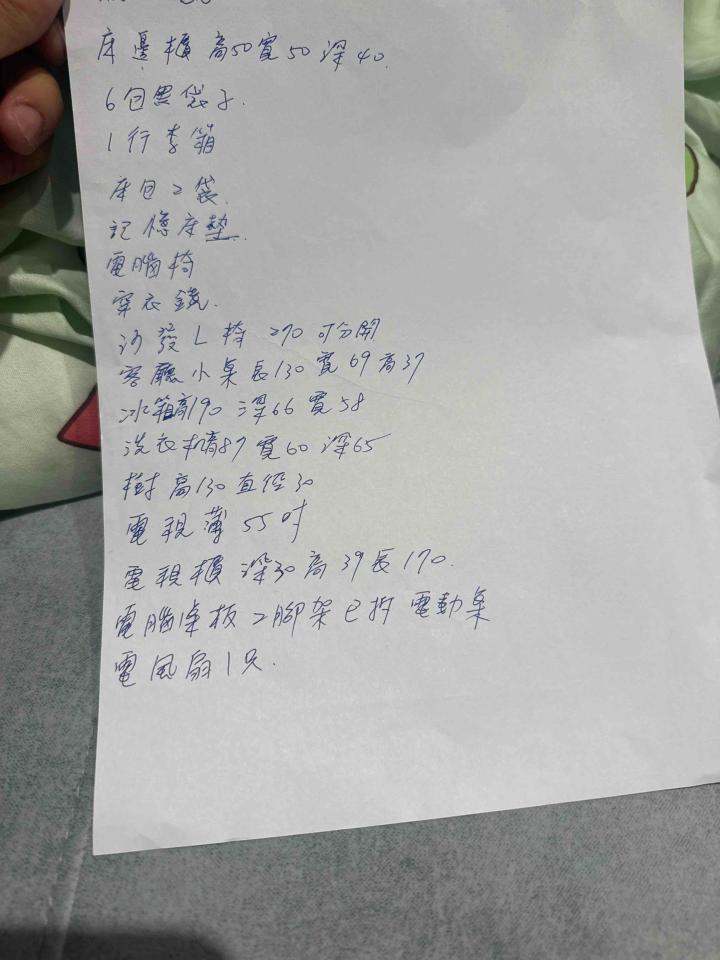 床邊櫃 高50寬50深40.
6包黑袋子.
1行李箱
床包2袋.
記憶床墊.
電腦椅
穿衣鏡.
沙發L椅 270可分開
客廳小桌長130寬69高37
冰箱高190 深66寬58
洗衣機高87寬60深65
樹高130直徑30
電視薄55吋
電視櫃 深30高39長170.
電腦桌板2腳架已拆 電動桌
電風扇1只.